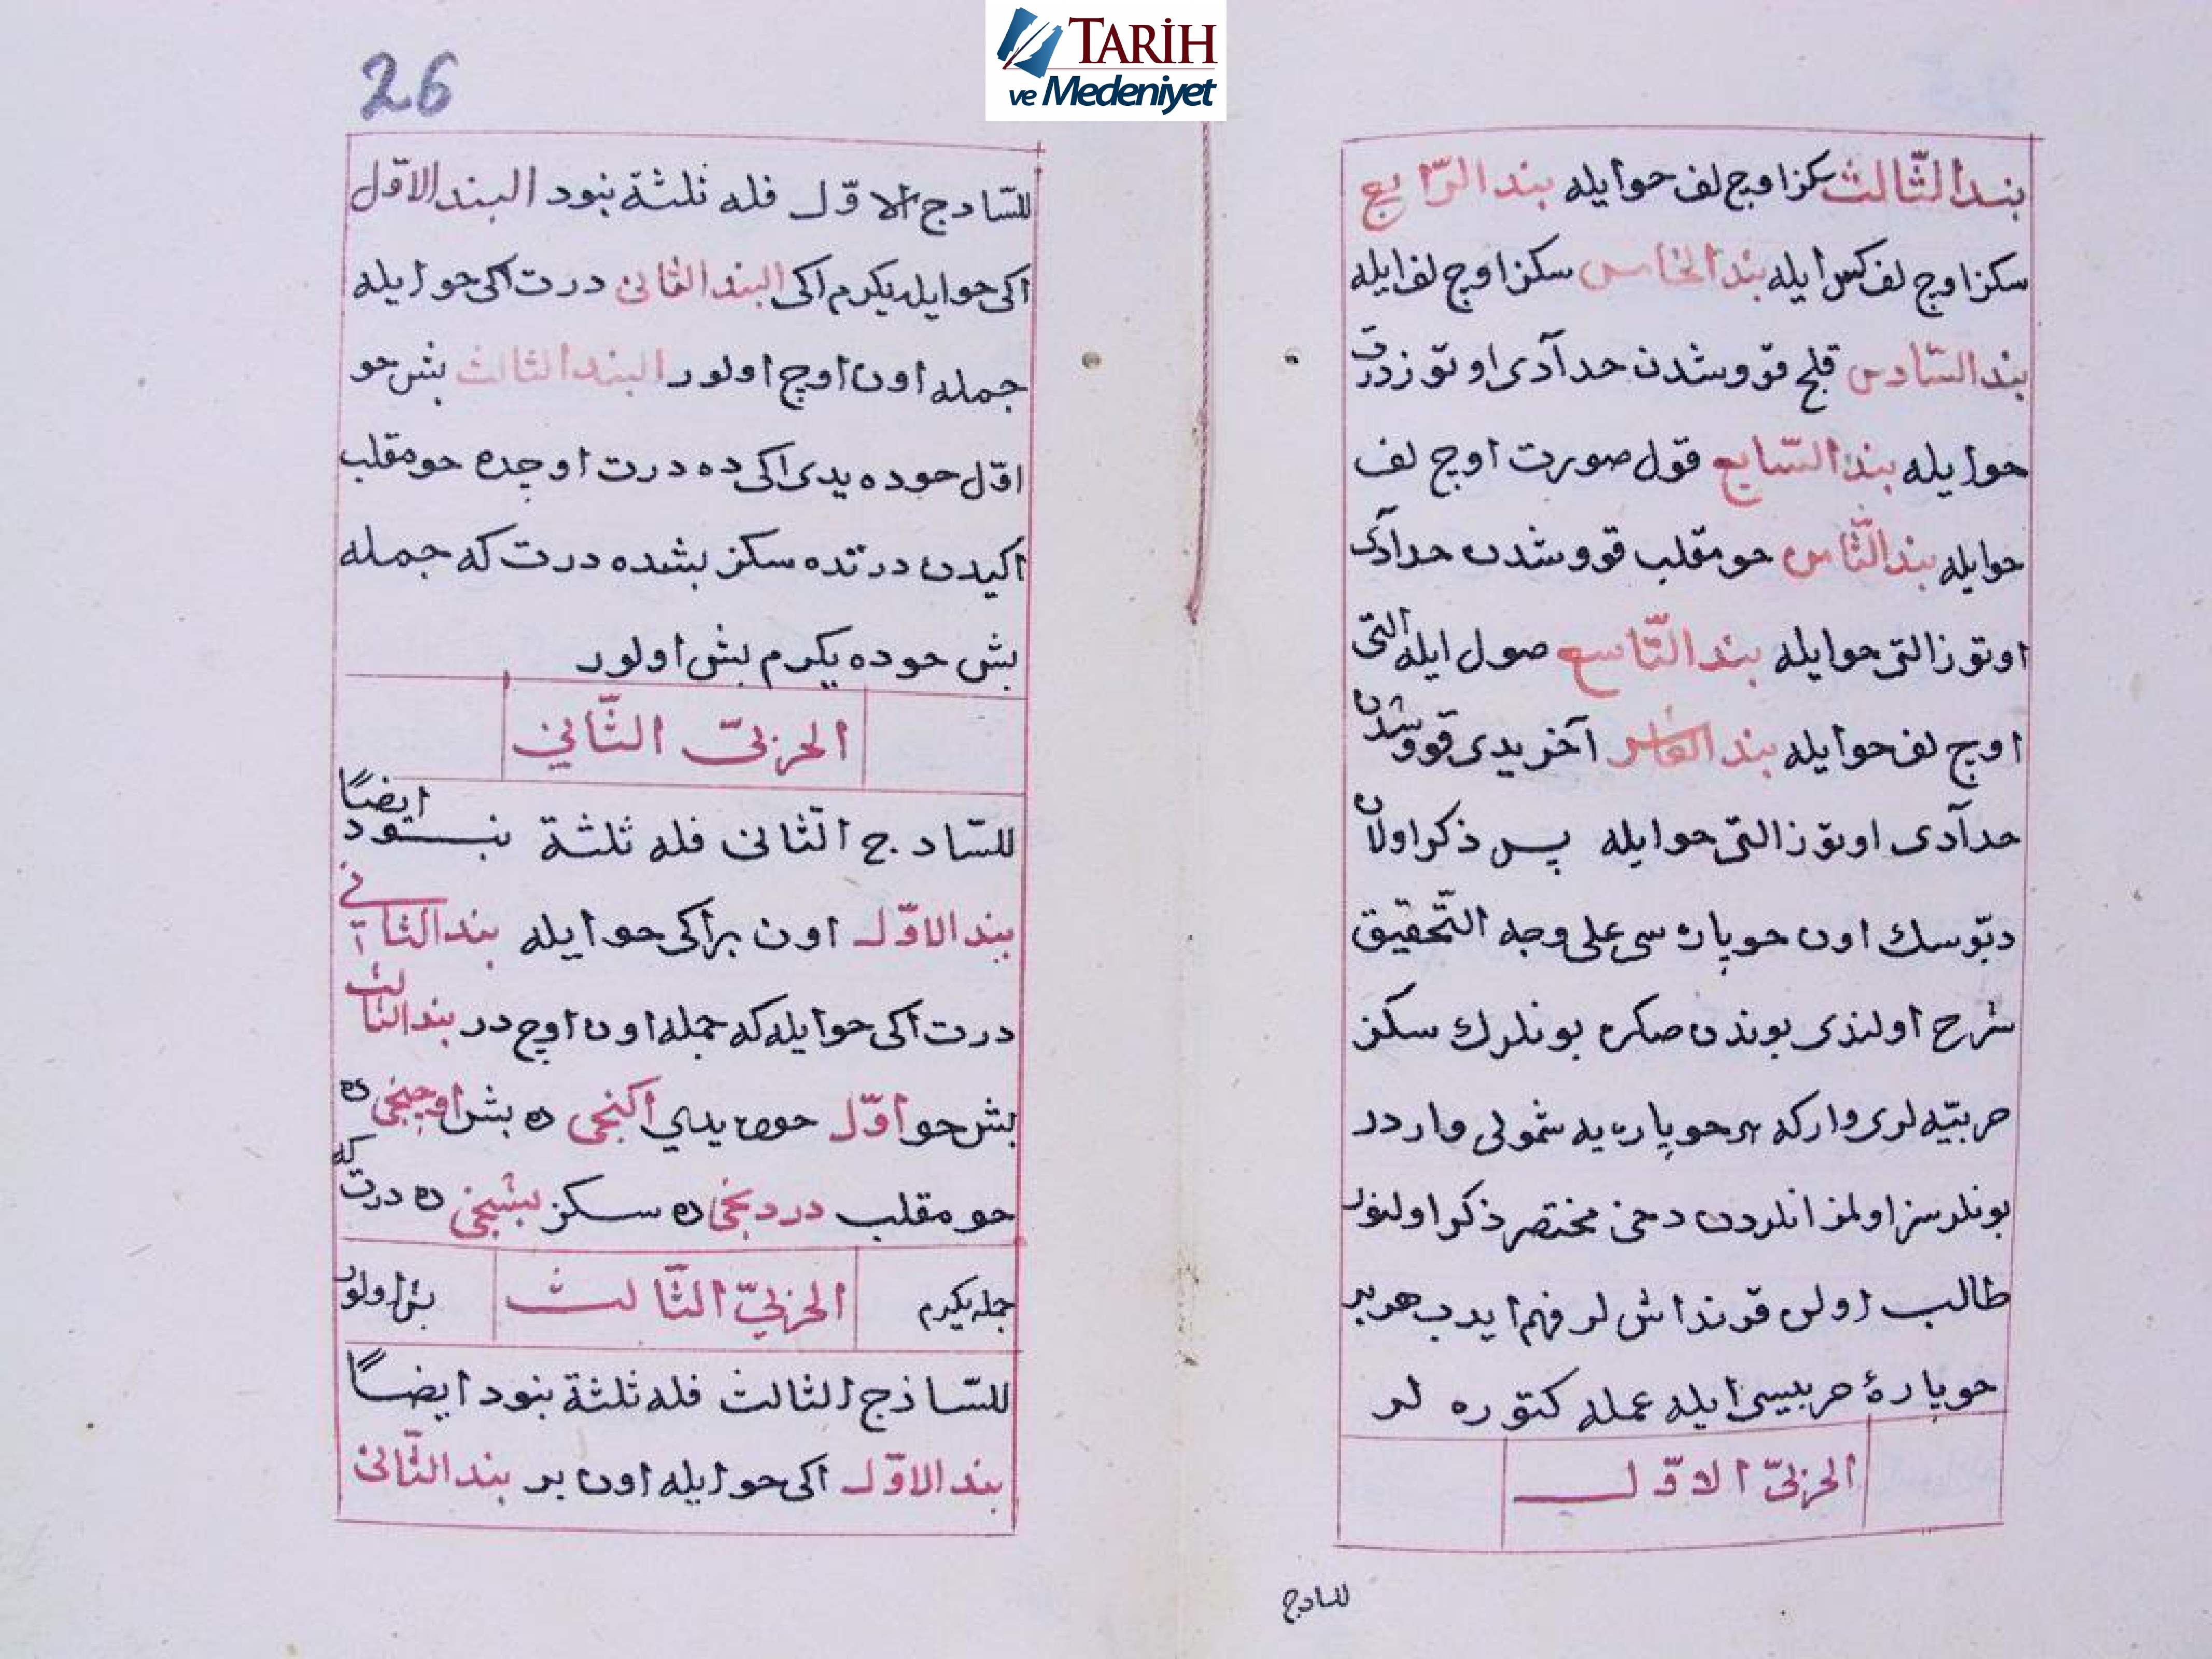 TARİH
ve Medeniyet
بند الثّالث سكز اوچ لف حو ايله بند الرّابع
سكز اوچ لف كس ايله بند الخامس سكز اوچ لف ايله
بند السّادس قلج قووشدن حد آدى اوتوز درت
حو ايله بند السّابع قول صورت اوچ لف
حو ايله بند الثّامن حو مقلب قووشدن حد آدى
اوتوز التى حو ايله بند التّاسع صول ايله التى
اوچ لف حو ايله بند العاشر آخر يدى قووشدن
حد آدى اوتوز التى حو ايله پس ذكر اولان
دبّوسك اون حو پاره سى على وجه التّحقيق
شرح اولندى بوندن صكره بونلرك سكز
حربيّه لرى وار كه هر حو پاره يه شمولى وار در
بونلرسز اولمز انلردن دخى مختصر ذكر اولنور
طالب اولن قرنداش لر فهم ايدب هر بر
حو پارهٔ حربيسى ايله عمله كتوره لر
الحربىّ الاوّل
للسادج
26
للسّادج الاوّل فله ثلثة بنود البند الاوّل
اكى حو ايله يكرم اكى البند الثانى درت اكى حو ايله
جمله اون اوچ اولور البند الثالث بش حو
اوّل حوده يدى اكى ده درت اوچده حو مقلب
اكيدن درتده سكز بشده درت كه جمله
بش حوده يكرم بش اولور
الحربىّ الثّاني
للسّادج الثّانى فله ثلثة بنود ايضاً
بند الاوّل اون بر اكى حو ايله بند الثانى
درت اكى حو ايله كه جمله اون اوچ در بند الثالث
بش حو اوّل حوده يدي اكنجى ده بش اوچنجى ده
حو مقلب دردنجى ده سكز بشنجى ده درت كه
جمله يكرم الحربىّ الثّالث بش اولور
للسّاذج الثالث فله ثلثة بنود ايضاً
بند الاوّل اكى حو ايله اون بر بند الثّانى